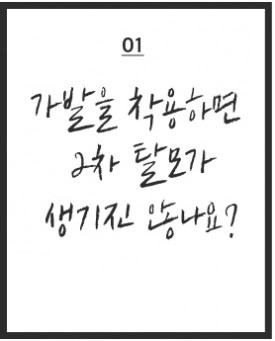 01
가발을 착용하면
2차 탈모가
생기진 않나요?